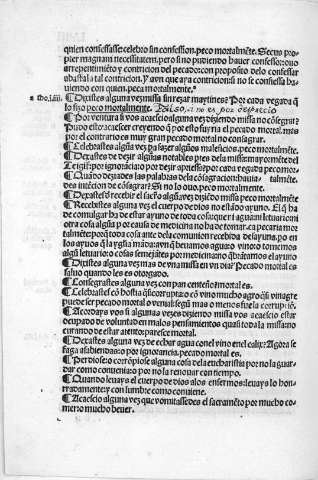 quien confessasse celebro sin confession. peco mortalmẽte. Secus pro
pter magnam necessitatem. pero si no pudiendo hauer confessor: ouo
arrepentimiẽto y contricion del pecado: con proposito delo confessar
abasta la tal contricion. Y avn que aya contricion si no se confiessa ha-
uiendo con quien. peca mortalmente.
Dixistes alguna vez missa sin rezar maytines? Por cada vegada q̃
lo fizo peco mortalmente. Falso, si no es por desprecio
Por ventura si vos acaescio alguna vez diziendo missa no cõsegrar?
Pudo esto acaescer creyendo q̃ por esto fuyria el pecado mortal. mas
por el contrario es muy gran pecado mortal no consagrar.
Celebrastes algũa vez pa fazer algũos maleficios. peco mortalmẽte.
Dexastes de dezir algũas notables pres dela missa: mayormẽte del
Te igit? por ignorancia: o por dezir apriessa? por cada vegada peco mor.
Quãdo deziades las palabras dela cõsagracion: hauia talmẽte.
des intẽcion de cõsagrar? Si no lo ouo. peco mortalmente.
Dexastes recebir el sacrõ algũa vez diziẽdo missa? peco mortalmẽte
Recebistes alguna vez el cuerpo de dios no estãdo ayuno. El q̃ ha
de comulgar ha de estar ayuno de toda cosa: que ni agua ni letuario: ni
otra cosa algũa por causa de medicina no ha de tomar. ca pecaria mor
talmẽte: porq̃ toda cosa ante dela comunion recebida desayuna. po en
los ayuos q̃ la yglia mãda: avn q̃ beuamos agua: o vino: o tomemos
algũ letuario: o cosas semejãtes por medicina: no q̃brãtamos el ayuno
Dixistes alguna vez mas de vna missa en vn dia? Pecado mortal es
saluo quando les es otorgado.
Consegrastes alguna vez con pan centeño? mortal es.
Celebrastes cõ hostia q̃si corrupta: o cõ vino mucho agro: q̃si vinagre
puede ser pecado mortal o venial: segũ mas o menos fuere la corrupiõ.
Acordays vos si algunas vezes diziendo missa vos acaescio estar
ocupado de voluntad en malos pensamientos quasi toda la missa: no
curando de estar atento: paresce mortal.
Dexastes alguna vez de echar agua conel vino enel calix? Agora se
faga a sabiendas: o por ignorancia. pecado mortal es.
Perdiose: o corrõpiose alguna cosa dela eucharistia por no la guar-
dar como conuenia: o por no la renouar con tiempo.
Quando leuays el cuerpo de dios alos enfermos: leuays lo hon-
rradamente: y con lumbre como conuiene.
Acaescio alguna vez que vomitassedes el sacramẽto por mucho co-
mer: o mucho beuer.